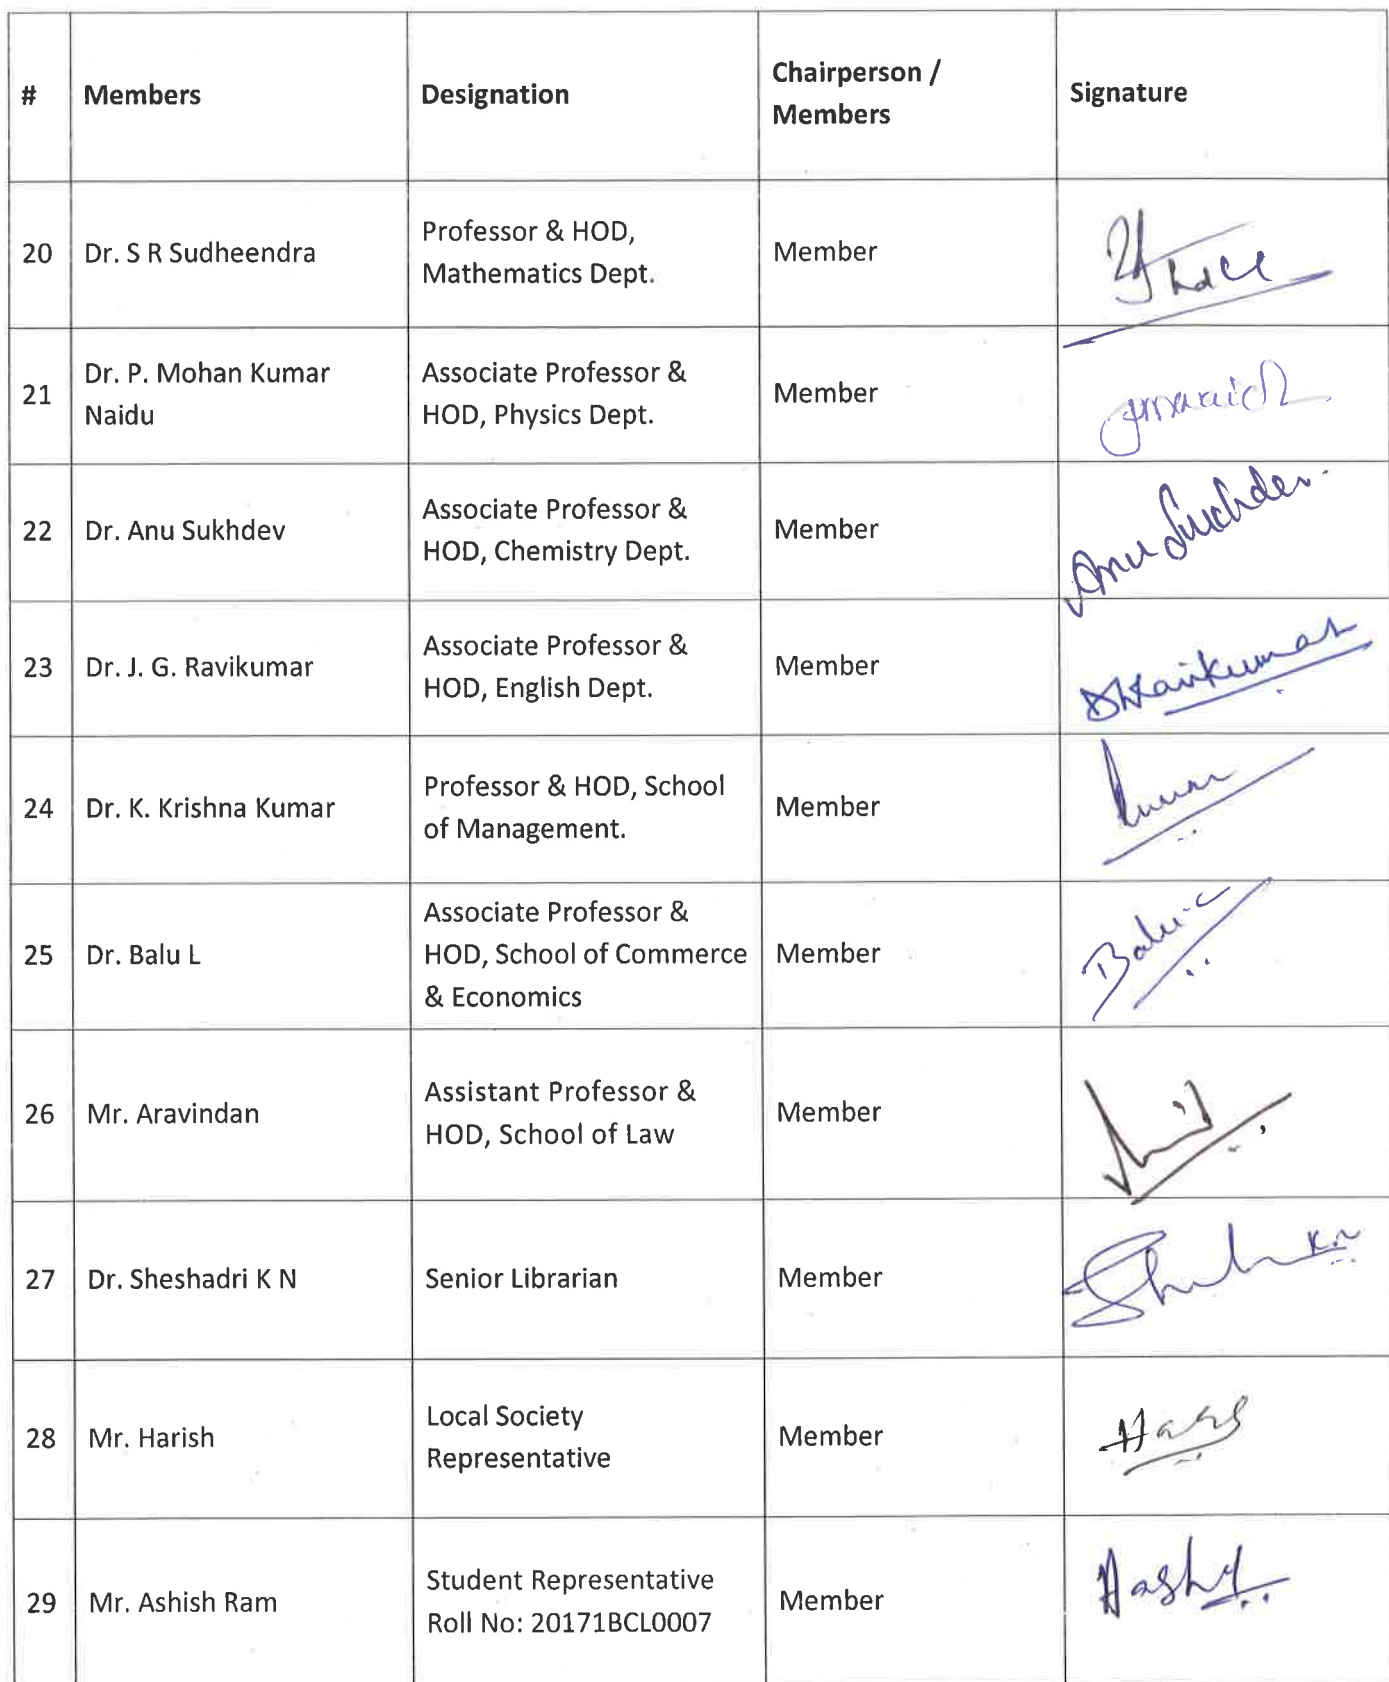 #
Members
Designation
Chairperson /
Members
Signature
20
Dr. S R Sudheendra
Professor & HOD,
Mathematics Dept.
Member
21
Dr. P. Mohan Kumar
Naidu
Associate Professor &
HOD, Physics Dept.
Member
22
Dr. Anu Sukhdev
Associate Professor &
HOD, Chemistry Dept.
Member
Anu Sukhdev
23
Dr. J. G. Ravikumar
Associate Professor &
HOD, English Dept.
Member
24
Dr. K. Krishna Kumar
Professor & HOD, School
of Management.
Member
25
Dr. Balu L
Associate Professor &
HOD, School of Commerce
& Economics
Member
Balu L
26
Mr. Aravindan
Assistant Professor &
HOD, School of Law
Member
27
Dr. Sheshadri K N
Senior Librarian
Member
28
Mr. Harish
Local Society
Representative
Member
29
Mr. Ashish Ram
Student Representative
Roll No: 20171BCL0007
Member